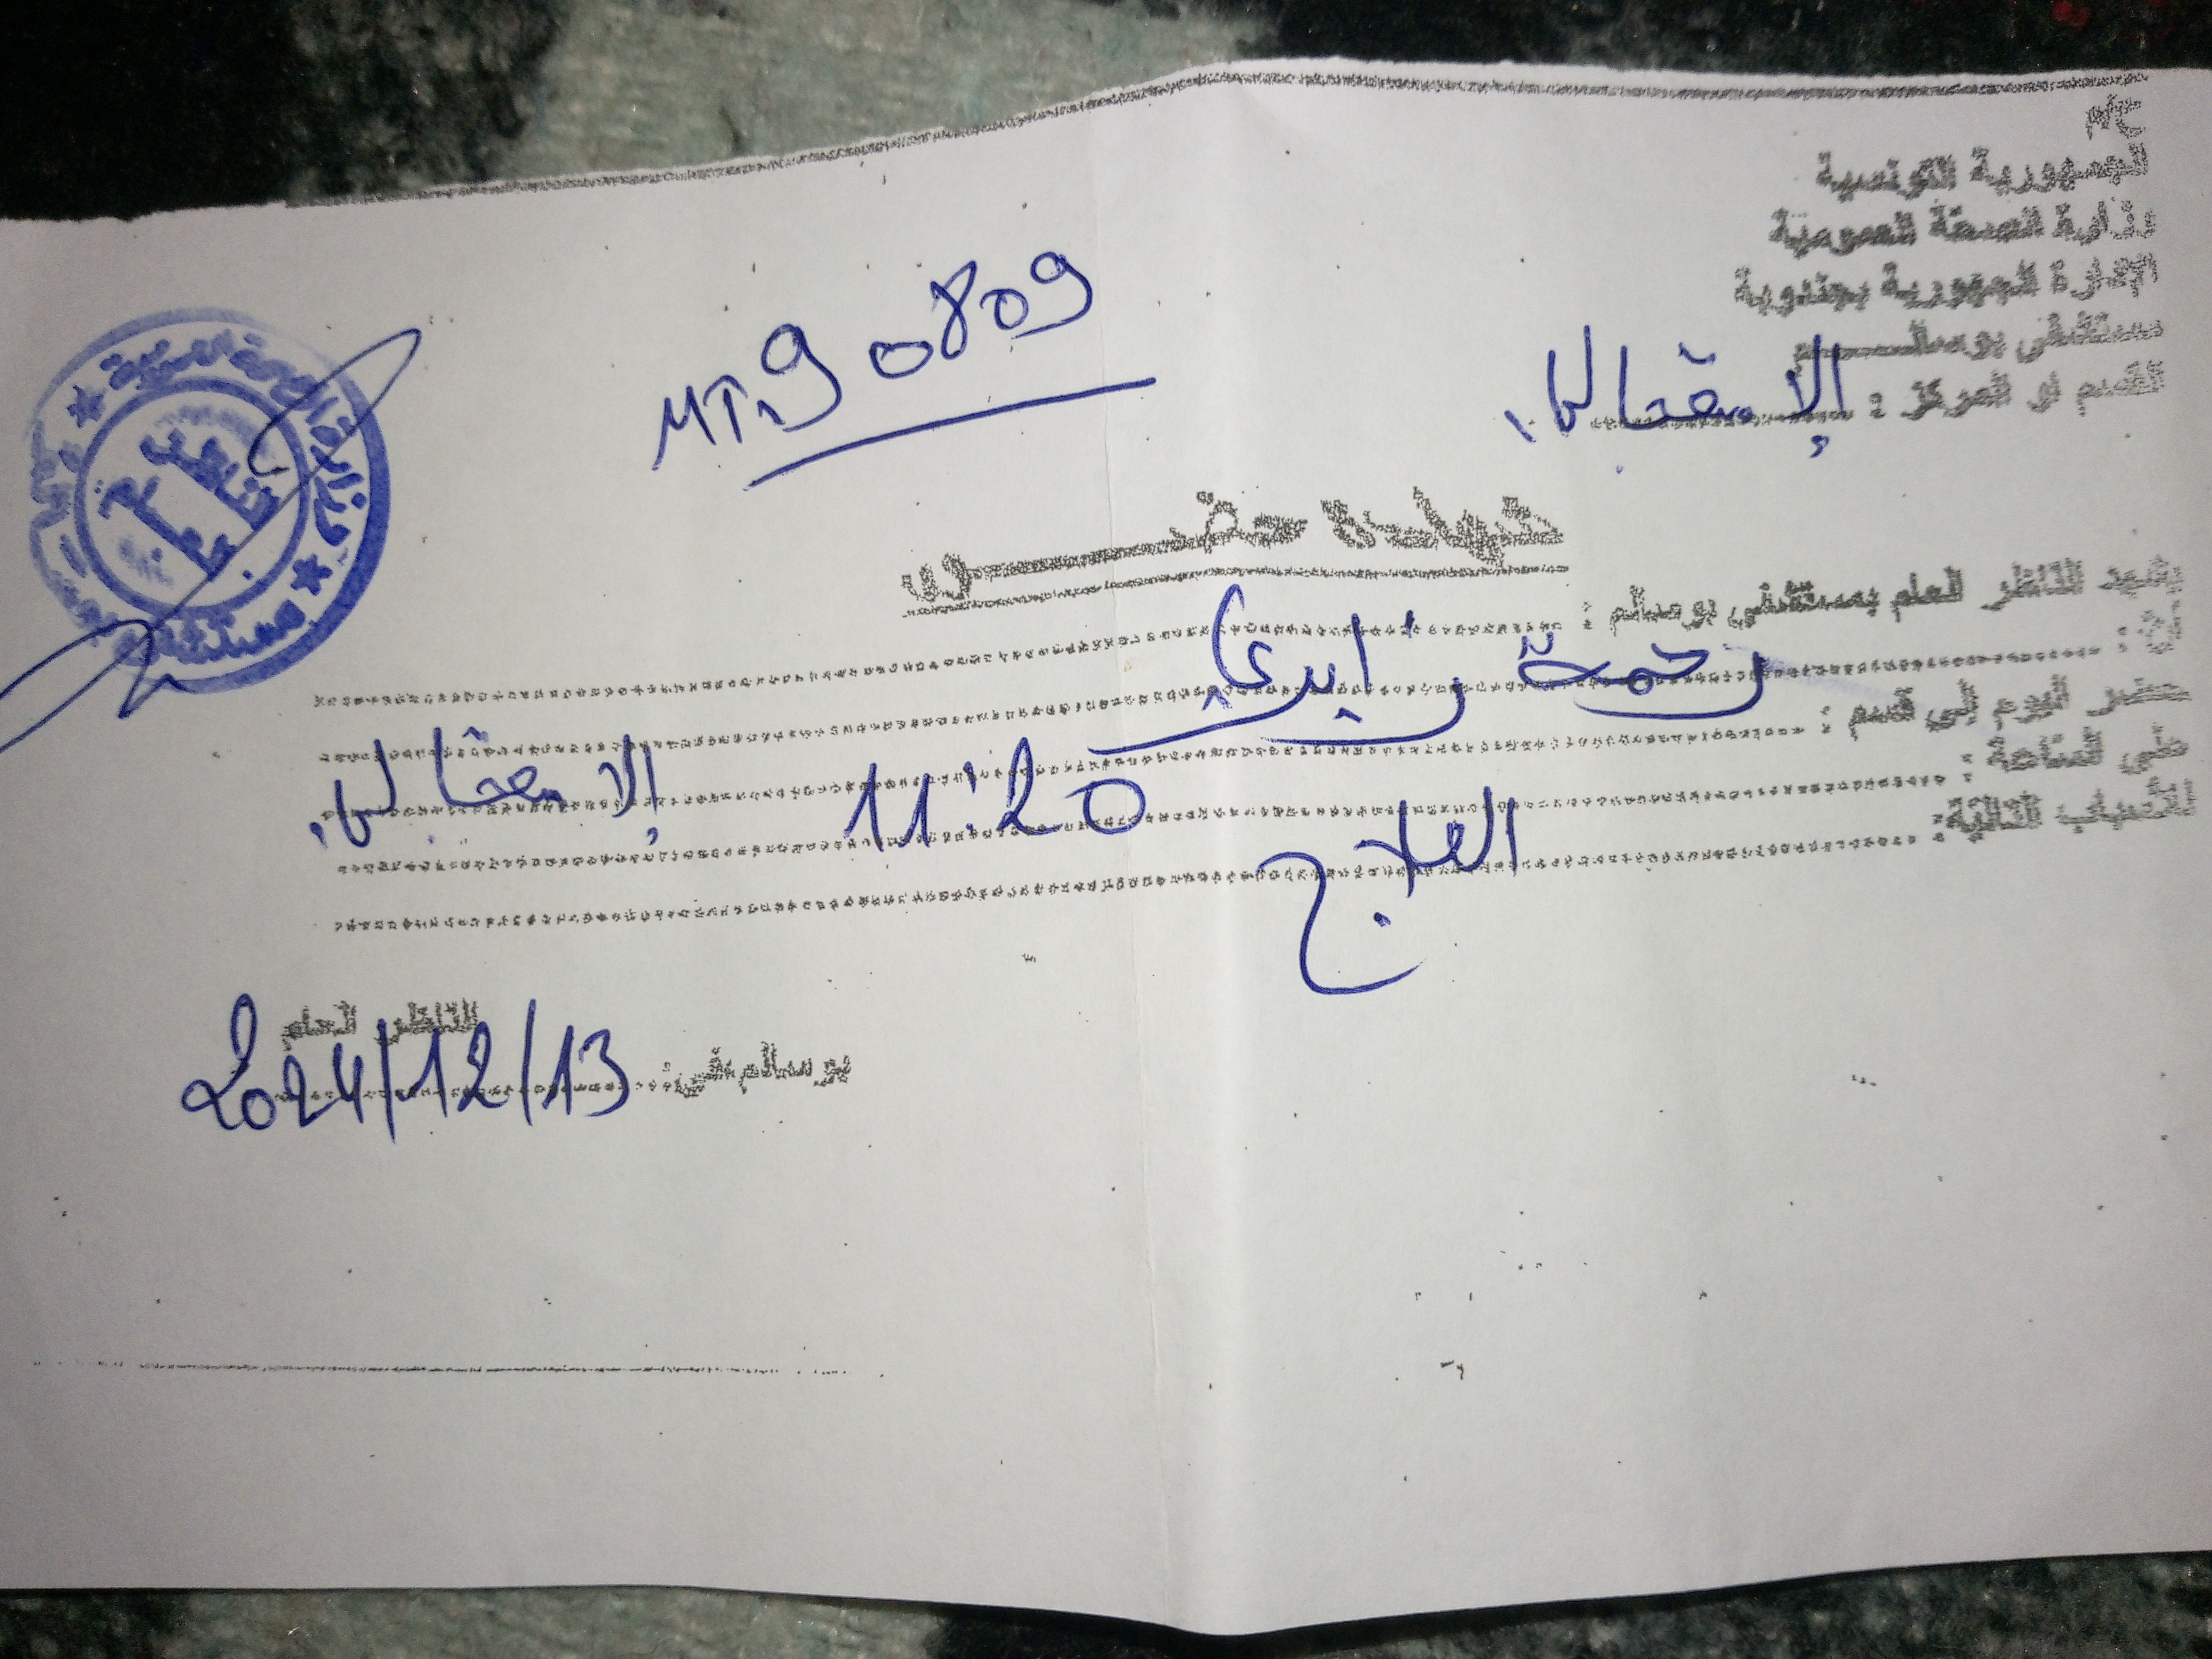 الجمهورية التونسية
وزارة الصحة العمومية
الإدارة الجهوية بجندوبة
مستشفى بوسالم
القسم او المركز : الإستعجالي
MT.90809
شهادة حضور
يشهد الناظر العام بمستشفى بوسالم :
أن : رحمة
حضر اليوم إلى قسم : الإستعجالي
على الساعة : 11:20
للأسباب التالية : العلاج
بوسالم في : 2024/12/13
الناظر العام